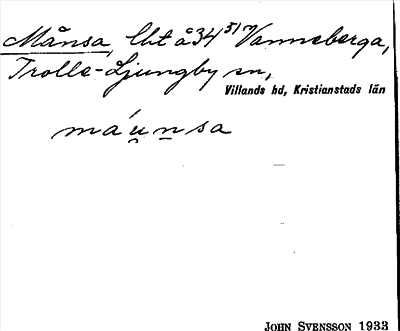 Månsa, lht å 34 51/m Vanneberga,
Trolle-Ljungby sn,
Villands hd, Kristianstads län
máu̯n̲sa
JOHN SVENSSON 1933